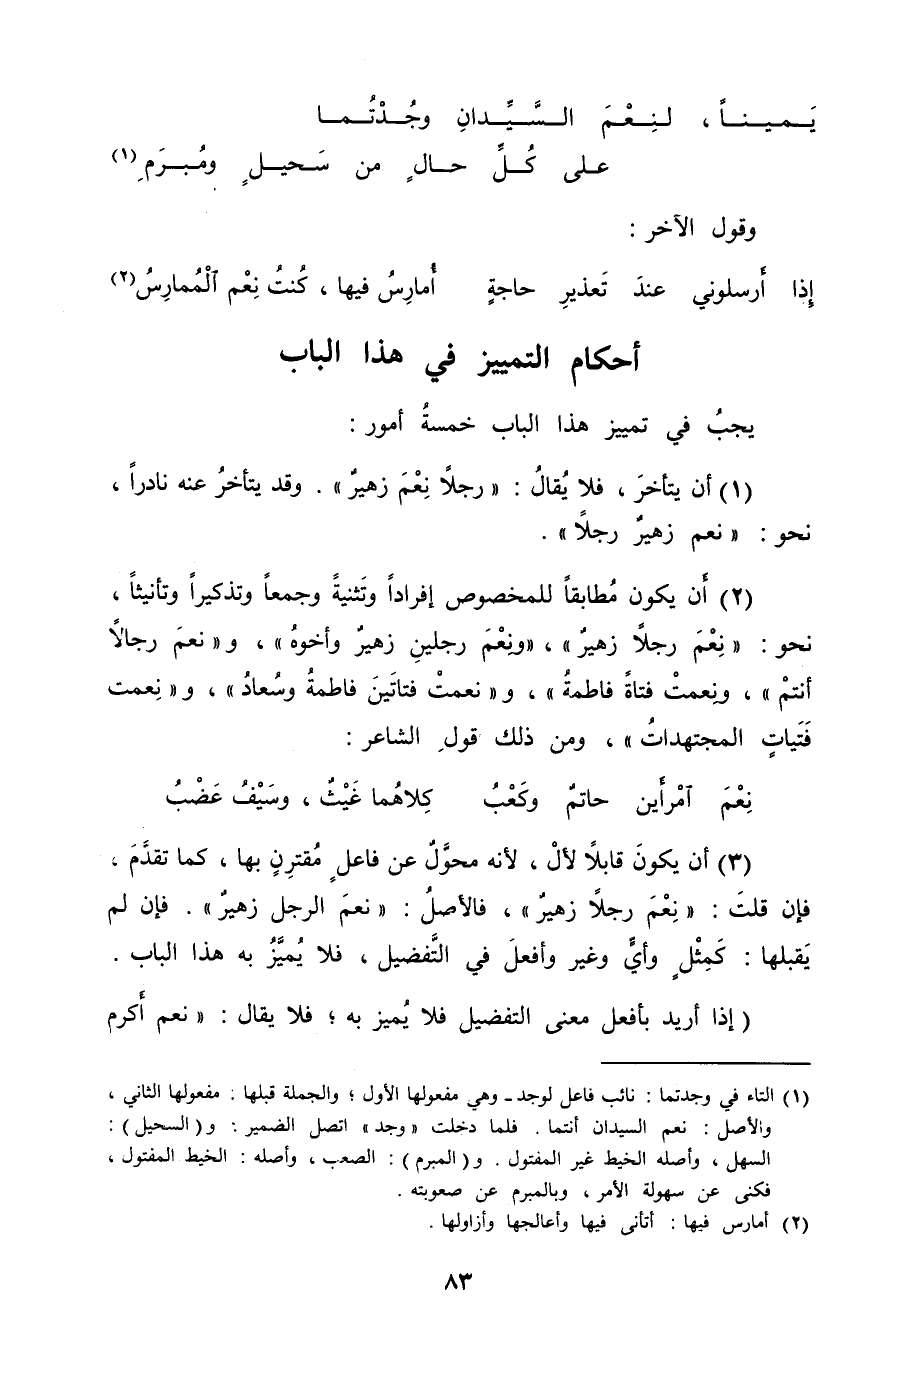 يَـمـيـنـاً ، لـنِـعْـمَ الـسَّـيِّـدانِ وجُـدْتُـمـا
عـلى كُـلِّ حـالٍ من سَـحيـلٍ ومُـبـرَمِ (١)
وقول الآخر :
إِذا أَرسلوني عندَ تَعذيرِ حاجةٍ أُمارِسُ فيها ، كُنتُ نِعْم ٱلْمُمارِسُ (٢)
أحكام التمييز في هذا الباب
يجبُ في تمييز هذا الباب خمسةُ أمور :
(١) أن يتأخرَ ، فلا يُقالُ : « رجلًا نِعْمَ زهيرٌ » . وقد يتأخرُ عنه نادراً ،
نحو : « نعم زهيرٌ رجلًا » .
(٢) أَن يكون مُطابقاً للمخصوص إفراداً وتَثنيةً وجمعاً وتذكيراً وتأنيثاً ،
نحو : « نِعْمَ رجلًا زهيرٌ » ، «ونِعْمَ رجلينِ زهيرٌ وأخوهُ » ، و« نعمَ رجالًا
أنتمْ » ، ونِعمتْ فتاةً فاطمةُ » ، و« نعمتْ فتاتَينَ فاطمةُ وسُعادُ » ، و« نِعمت
فَتَياتٍ المجتهداتُ » ، ومن ذلك قولِ الشاعر :
نِعْمَ ٱمْرأَين حاتمٌ وكَعْبُ كِلاهُما غَيْثٌ ، وسَيْفُ عَضْبُ
(٣) أن يكونَ قابلًا لألْ ، لأنه محوَّلٌ عن فاعلٍ مُقترِنٍ بها ، كما تقدَّمَ ،
فإن قلتَ : « نِعْمَ رجلًا زهيرٌ » ، فالأصلُ : « نعمَ الرجل زهيرٌ » . فإن لم
يَقبلها : كَمِثْلٍ وأيٍّ وغير وأفعلَ في التَّفضيل ، فلا يُميَّزُ به هذا الباب .
( إذا أريد بأفعل معنى التفضيل فلا يُميز به ؛ فلا يقال : « نعم أَكرم
(١) التاء في وجدتما : نائب فاعل لوجد ـ وهي مفعولها الأول ؛ والجملة قبلها : مفعولها الثاني ،
والأصل : نعم السيدان أنتما . فلما دخلت « وجد » اتصل الضمير : و( السحيل ) :
السهل ، وأصله الخيط غير المفتول . و( المبرم ) : الصعب ، وأصله : الخيط المفتول ،
فكنى عن سهولة الأمر ، وبالمبرم عن صعوبته .
(٢) أمارس فيها : أتأنى فيها وأعالجها وأزاولها .
٨٣